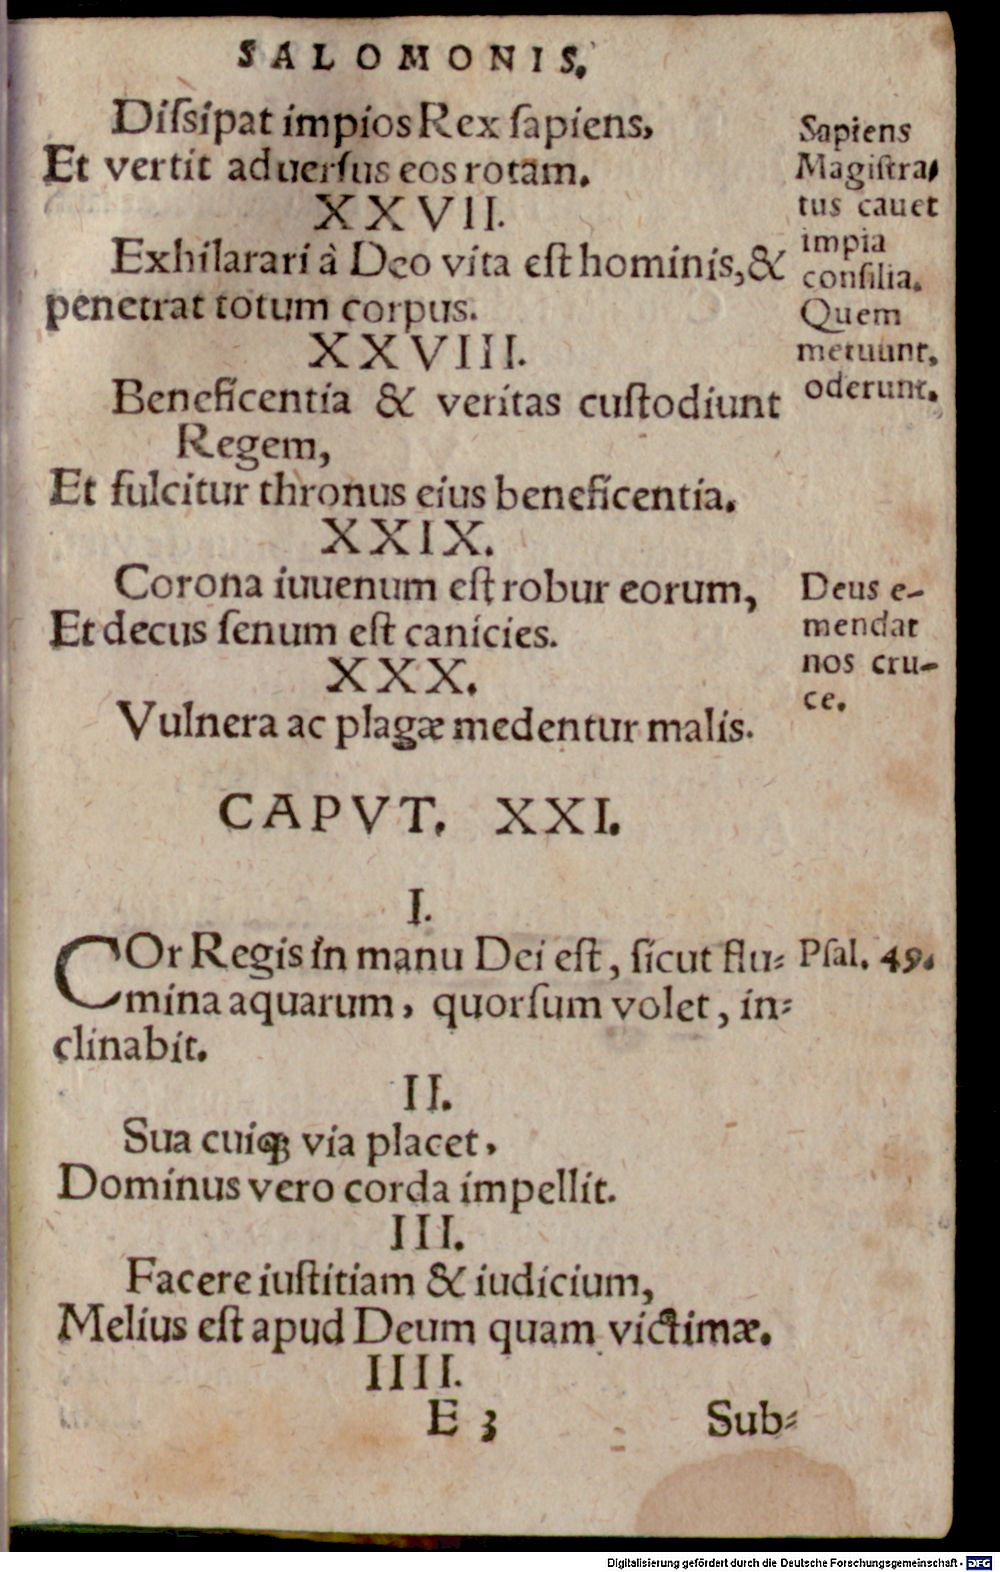 SALOMONIS.
Diſsipat impios Rex ſapiens,
Et vertit aduerſus eos rotam.
XXVII.
Exhilarari à Deo vita eſt hominis, &
penetrat totum corpus.
XXVIII.
Beneficentia & veritas cuſtodiunt
Regem,
Et fulcitur thronus eius beneficentia.
XXIX.
Corona iuuenum eſt robur eorum,
Et decus ſenum eſt canicies.
XXX.
Vulnera ac plagæ medentur malis.
Sapiens
Magiſtra⸗
tus cauet
impia
conſilia.
Quem
metuunt,
oderunt.
Deus e-
mendat
nos cru-
ce.
CAPVT. XXI.
I.
COr Regis in manu Dei eſt, ſicut flu⸗
mina aquarum, quorſum volet, in⸗
clinabit.
Pſal. 49.
II.
Sua cuiqꝫ via placet,
Dominus vero corda impellit.
III.
Facere iuſtitiam & iudicium,
Melius eſt apud Deum quam victimæ.
IIII.
E 3
Sub⸗
Digitalisierung gefördert durch die Deutsche Forschungsgemeinschaft - DFG